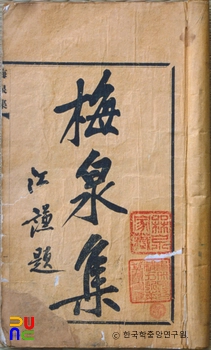 梅泉集
江謙題
梅泉集
© 한국학중앙연구원